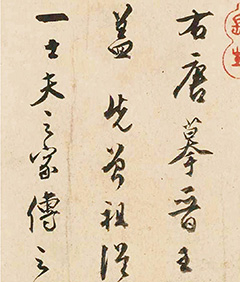 右唐摹晉王
盖先曾祖從
一士夫之家傳之